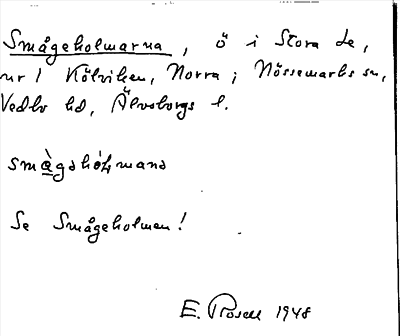 Smågeholmarna, ö i Stora Le,
nr 1 Kölviken, Norra; Nössemarks sn,
Vedbo hd, Älvsborgs l.
småg
Se Smågeholmen!
E. Rosell 1948